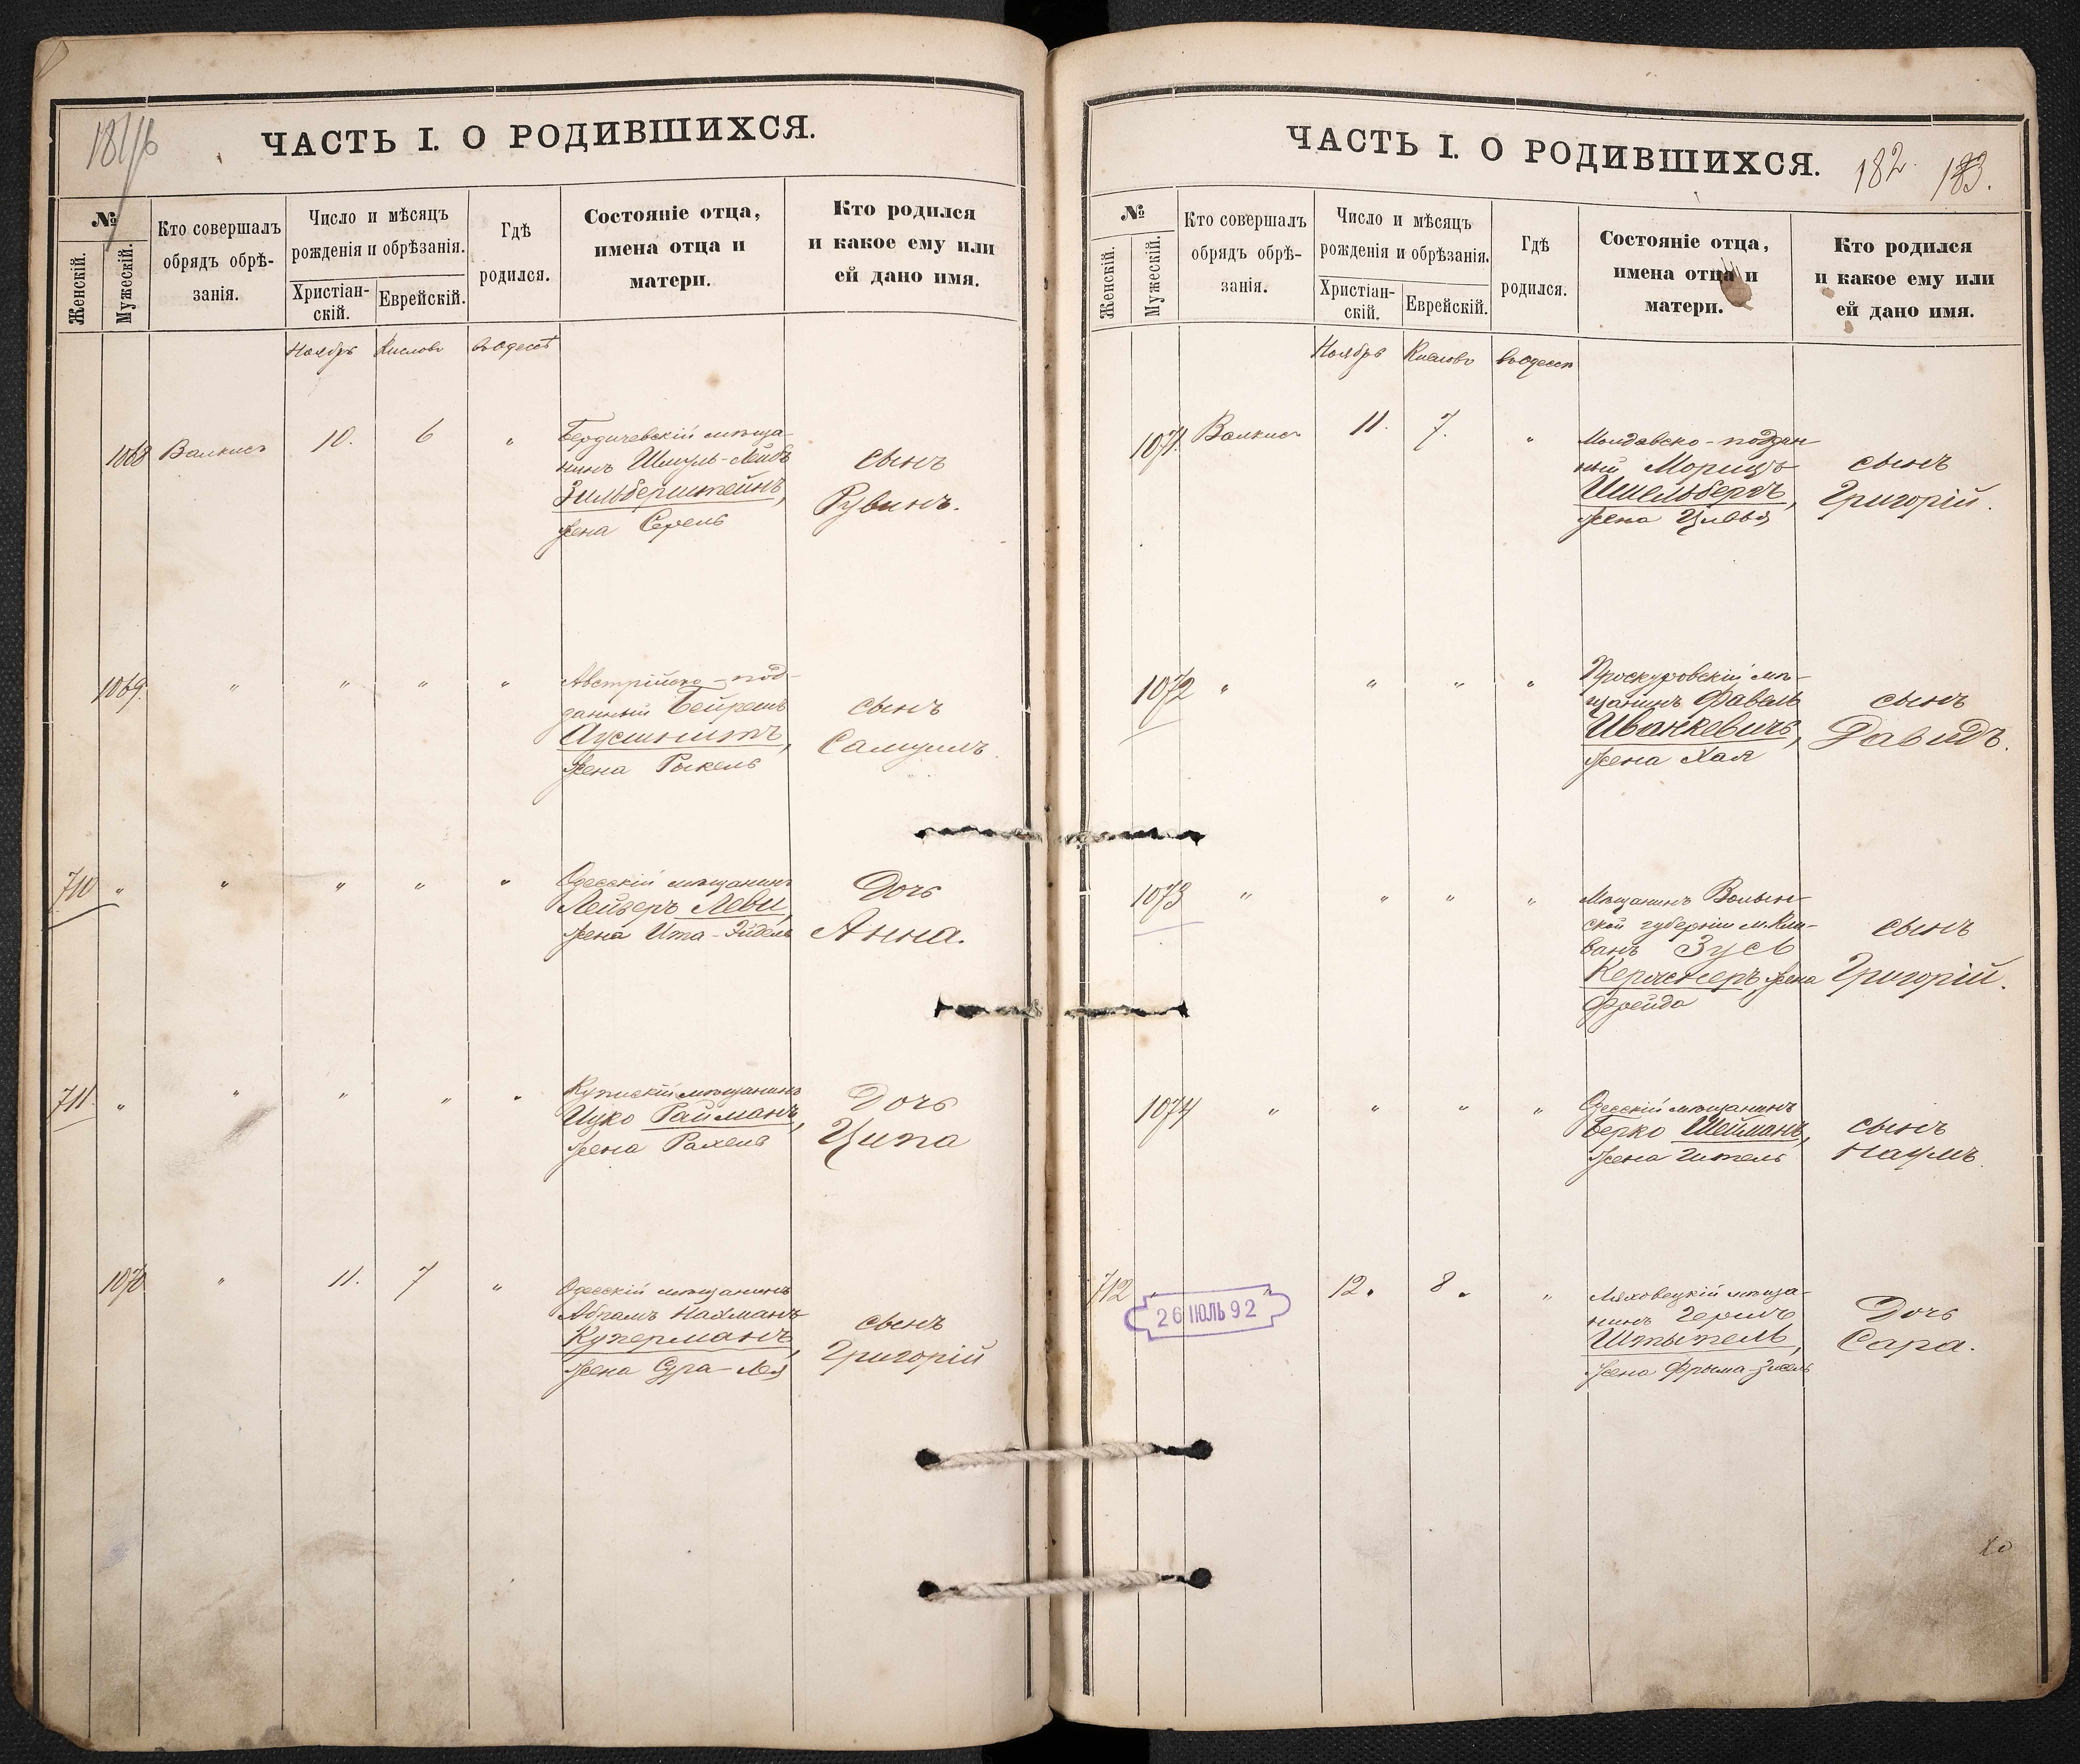 181/6
ЧАСТЬ I. О РОДИВШИХСЯ.
№
Женскій.
Мужескій.
Кто совершалъ
обрядъ обрѣ-
занія.
Число и мѣсяцъ
рожденія и обрѣзанія.
Христіан-
скій.
Еврейскій.
Гдѣ
родился.
Состояніе отца,
имена отца и
матери.
Кто родился
и какое ему или
ей дано имя.
Ноябрь Кисловъ въ Одессѣ
1068 Валкисъ 10. 6 "
Бердичевскій мѣща-
нинъ Шмуль-Лейбъ
Зильберштейнъ,
жена Серель
сынъ
Рувинъ.
1069. " " " "
Австрійско-под-
данный Бейришъ
жена Рыкель
сынъ
Самуилъ.
710 " " " " "
Одесскій мѣщанинъ
Лейзеръ Леви,
жена Ита-Эйдель
Дочь
Анна.
711. " " " " "
мѣщанинъ
Ицко Райманъ,
жена Рахель
Дочь
Ципа
1070 " 11. 7 "
Одесскій мѣщанинъ
Абрамъ Нахманъ
Куперманъ,
жена Сура-Лея
сынъ
Григорій
ЧАСТЬ I. О РОДИВШИХСЯ.
182. 183.
№
Женскій.
Мужескій.
Кто совершалъ
обрядъ обрѣ-
занія.
Число и мѣсяцъ
рожденія и обрѣзанія.
Христіан-
скій.
Еврейскій.
Гдѣ
родился.
Состояніе отца,
имена отца и
матери.
Кто родился
и какое ему или
ей дано имя.
Ноябрь Кисловъ въ Одессѣ
1071. Валкисъ 11. 7. "
Молдавско-поддан
ный Морицъ
жена Цивья
сынъ
Григорій.
1072 " " " "
Проскуровскій мѣ-
щанинъ Фавель
Иванкевичъ,
жена Хая
сынъ
Давидъ.
1073 " " " "
Мѣщанинъ Волын-
ской губерніи м. Кли-
ванъ Зусь
Кержнеръ, жена
Фрейда
сынъ
Григорій.
1074 " " " "
Одесскій мѣщанинъ
Берко Шейманъ,
жена Гитель
сынъ
Наумъ.
712 " " 12. 8. "
26 ІЮЛЬ 92
Ляховецкій мѣща-
нинъ Гершъ
Штытель,
жена Фрыма-Зисель
Дочь
Сара.